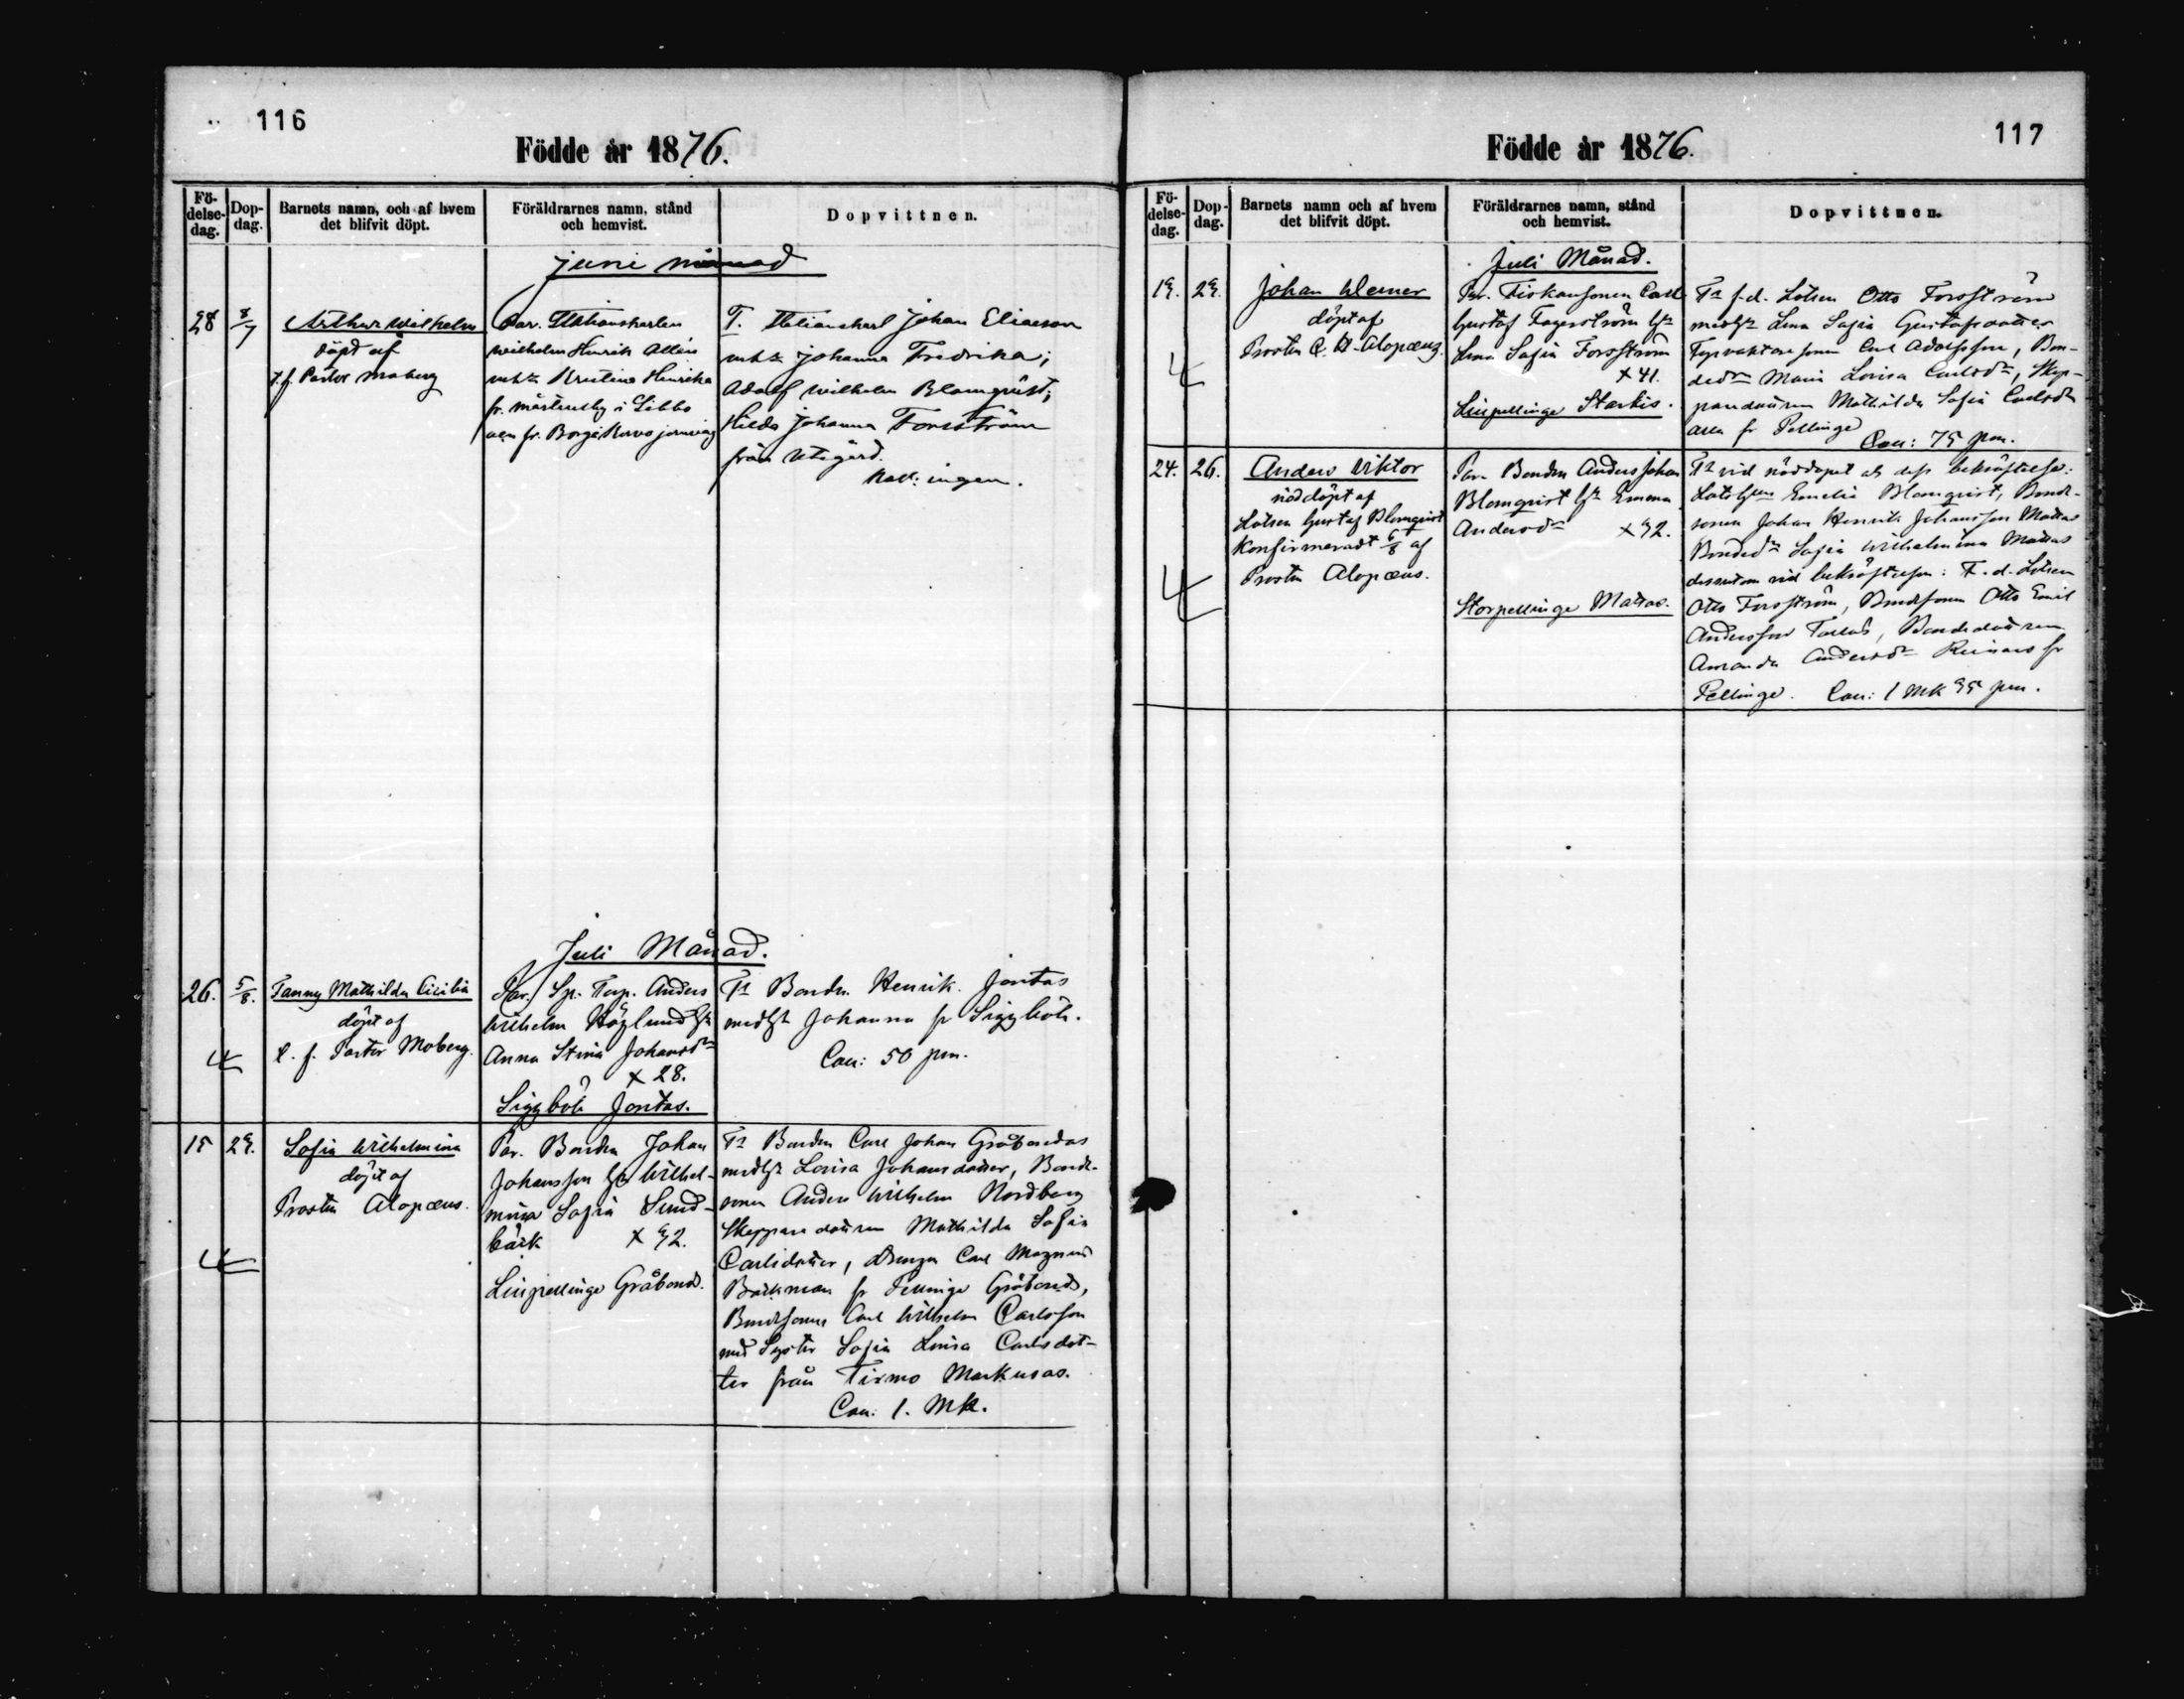 116
Födde år 1876.
Fö-
delse-
dag.
Dop-
dag.
Barnets namn, och af hvem
det blifvit döpt.
Föräldrarnes namn, stånd
och hemvist.
Dopvittnen.
juni månad
28
8/7
Arthur Wilhelm
döpt af
t.f. Pastor Moberg
Par. Stationskarlen
Wilhelm Henrik Allén
Kristina Henrika
fr. i Sibbo
fr. Borgå Kervo
T. Stationskarl Johan Eliasson
Johanna Fredrika;
Adolf Wilhelm Blomqvist,
Hilda Johanna Forsström
från
ingen.
Juli Månad.
26.
5/8.
Fanny Mathilda Cicilia
döpt af
t. f. Pastor Moberg.
Par. Sp. Torp. Anders
Wilhelm Höglund
Anna Stina Johansdr
x 28.
Siggböle Jontas.
Bondn. Henrik Jontas
Johanna fr Siggböle.
Can: 50 pm.
15
29.
Sofia Wilhelmina
döpt af
Prosten Alopæus.
Par. Bonden Johan
Johansson Wilhel-
mina Sofia Sund-
bäck x 32.
Lillpellinge Gråbonds.
Bonden Carl Johan Gråbondas
Lovisa Johansdotter, Bonde-
sonen Anders Wilhelm Nordberg
Skeppare dottren Mathilda Sofia
Carlsdotter, Drengen Carl Magnus
Backman fr Pellinge Gråbonds,
Bondesonen Carl Wilhelm Carlsson
med Syster Sofia Lovisa Carlsdot-
ter från Tirmo Markusas.
Can: 1. Mk.
117
Födde år 1876.
Fö-
delse-
dag.
Dop-
dag.
Barnets namn och af hvem
det blifvit döpt.
Föräldrarnes namn, stånd
och hemvist.
Dopvittnen.
Juli Månad.
19.
29.
Johan Werner
döpt af
Prosten Alopæus.
Par. Fiskaresonen Carl
Gustaf Fagerström
Lena Sofia Forsström
x 41.
Lillpellinge Starkis.
f.d. Lotsen Otto Forsström
Lena Sofia Gustafsdotter
Fyrvaktaresonen Carl Adolfsson, Bon-
dedr Maria Lovisa Carlsdr, Skep-
paredottren Mathilda Sofia Carlsdr
alla fr Pellinge Can: 75 pm.
24.
26.
Anders Viktor
nöddöpt af
Lotsen Gustaf Blomqvist
Konfirmeradt 6/8 af
Prosten Alopæus.
Par. Bonden Anders Johan
Blomqvist Emma
Andersdr x 32.
Storpellinge Mattas.
vid nöddopet och dess bekräftelse:
Emelia Blomqvist, Bonde-
sonen Johan Henrik Johansson Mattas
Bondedr Sofia Wilhelmina Mattas
dessutom vid bekräftelsen: F. d. Lotsen
Otto Forsström, Bondesonen Otto Emil
Andersson Tallas, Bondedottren
Amanda Andersdr Reinars fr
Pellinge. Can: 1 Mk 95 pm.